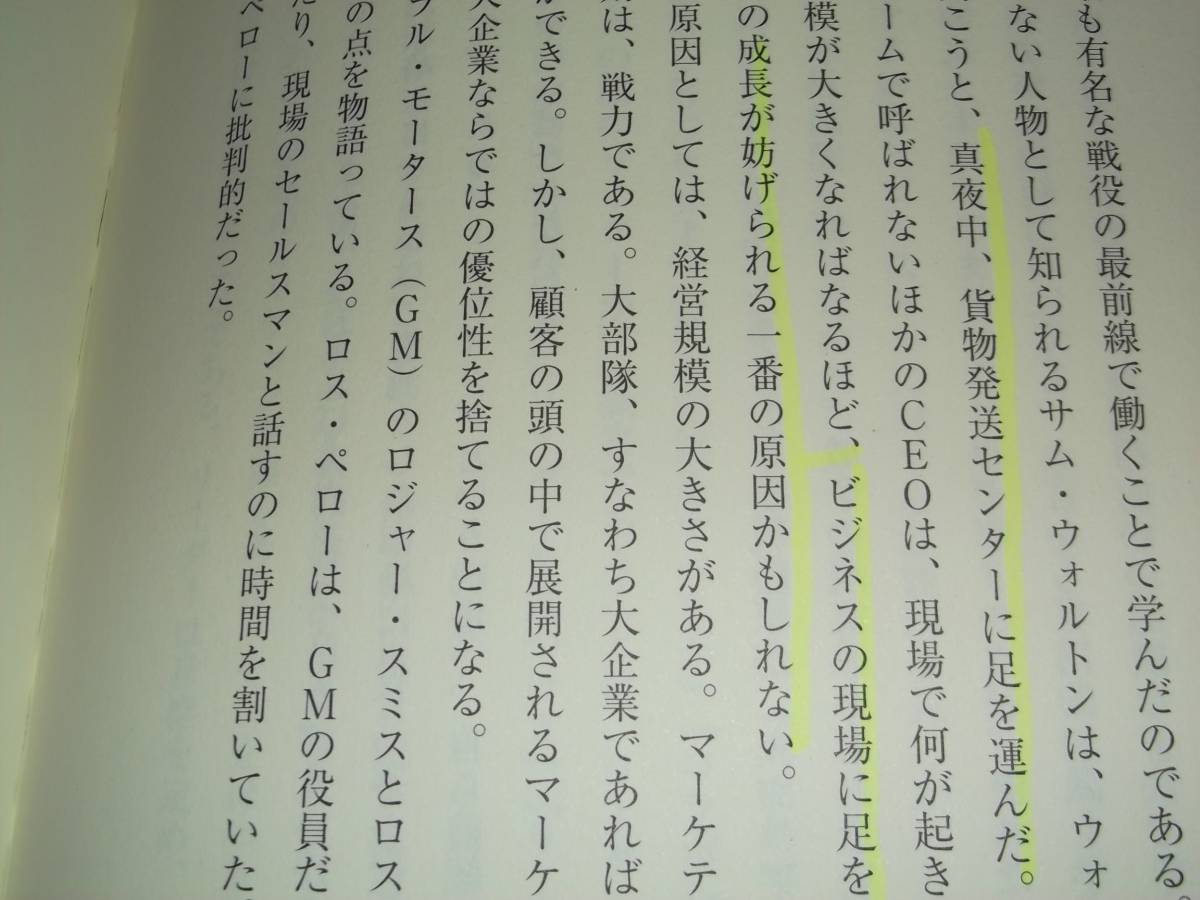 も有名な戦役の最前線で働くことで学んだのである。
ない人物として知られるサム・ウォルトンは、ウォ
こうと、真夜中、貨物発送センターに足を運んだ。
ームで呼ばれないほかのCEOは、現場で何が起き
模が大きくなればなるほど、ビジネスの現場に足を
の成長が妨げられる一番の原因かもしれない。
原因としては、経営規模の大きさがある。マーケテ
は、戦力である。大部隊、すなわち大企業であれば
ができる。しかし、顧客の頭の中で展開されるマーケ
大企業ならではの優位性を捨てることになる。
ラル・モータース（GM）のロジャー・スミスとロス
の点を物語っている。ロス・ペローは、GMの役員だ
たり、現場のセールスマンと話すのに時間を割いていた。
ペローに批判的だった。